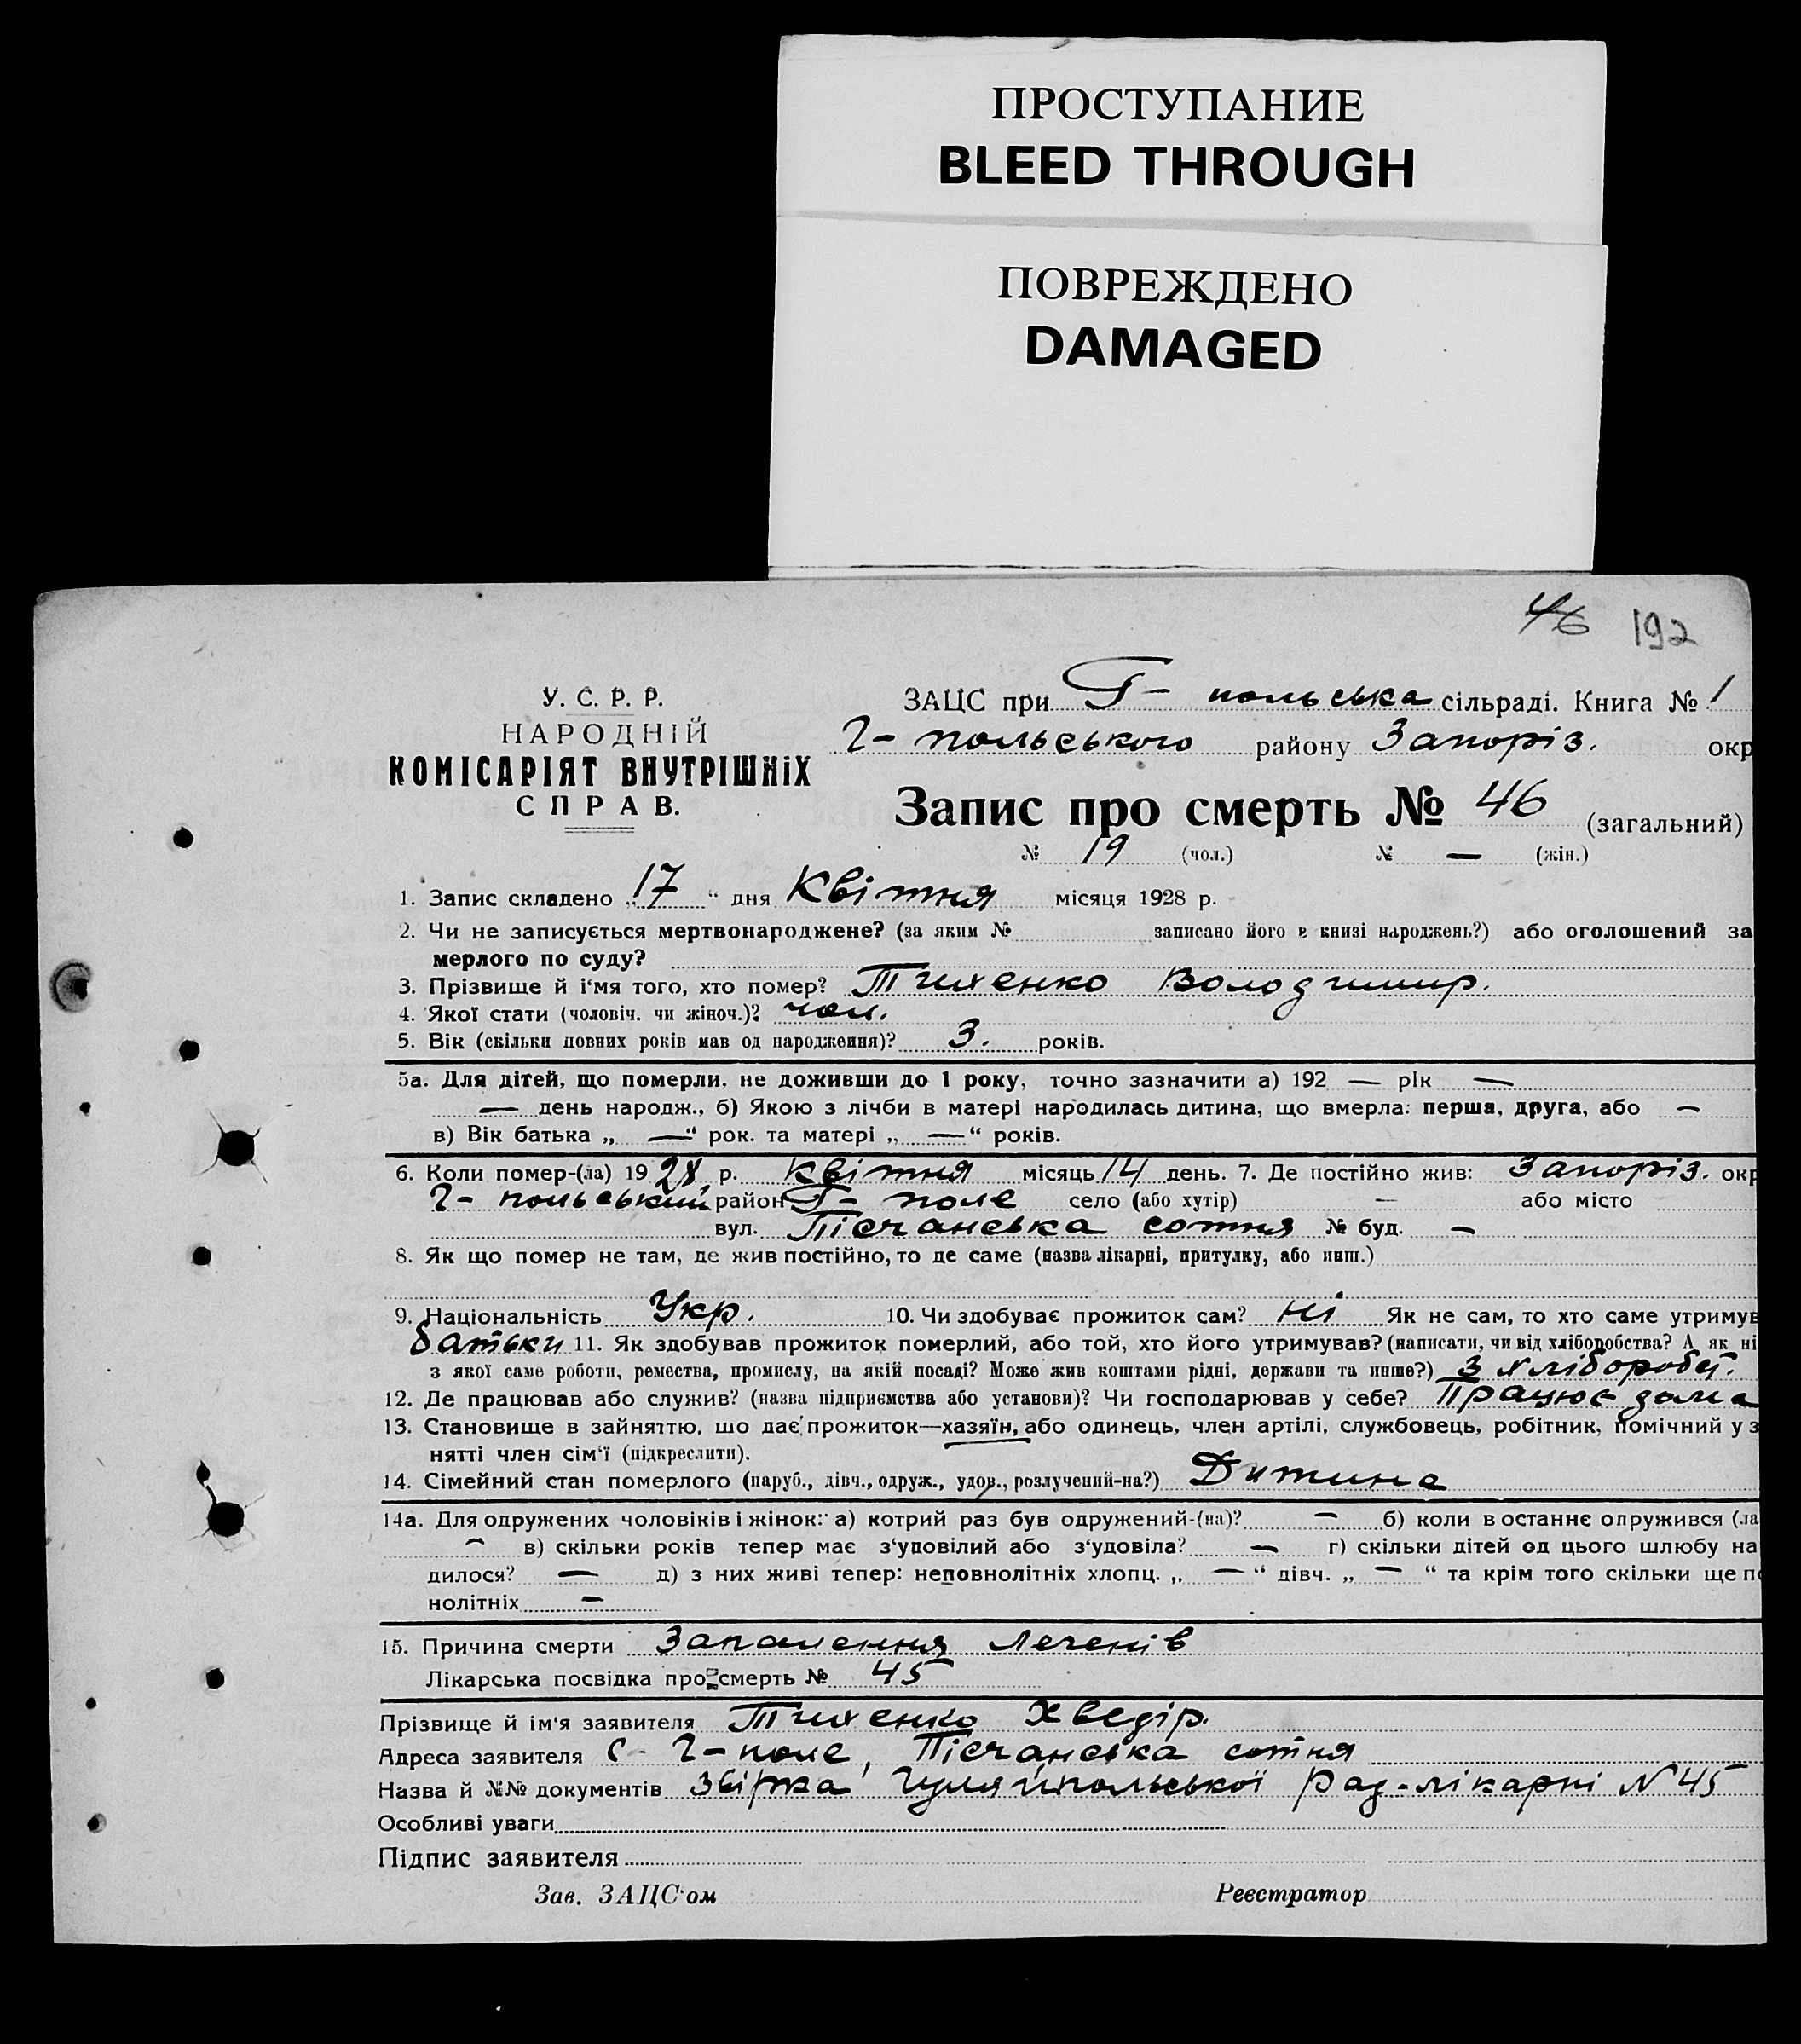 ПРОСТУПАНИЕ
BLEED THROUGH
ПОВРЕЖДЕНО
DAMAGED
46 192
У. С. Р. Р.
НАРОДНІЙ
КОМІСАРІЯТ ВНУТРІШНІХ
СПРАВ.
ЗАЦС при Г- польська сільраді. Книга № 1
Г- польського району Запоріз. окр
Запис про смерть № 46 (загальний)
№ 19 (чол.) № — (жін.)
1. Запис складено „17“ дня Квітня місяця 1928 р.
2. Чи не записується мертвонароджене? (за яким № записано його в книзі народжень?) або оголошений за
мерлого по суду?
3. Прізвище й і'мя того, хто помер? Тихенко Володимир.
4. Якої стати (чоловіч. чи жіноч.)? чол.
5. Вік (скільки повних років мав од народження)? 3. років.
5а. Для дітей, що померли, не доживши до 1 року, точно зазначити а) 192 — рік —
— день народж., б) Якою з лічби в матері народилась дитина, що вмерла: перша, друга, або —
в) Вік батька „ —“ рок. та матері „ —“ років.
6. Коли помер-(ла) 1928 р. Квітня місяць 14 день. 7. Де постійно жив: Запоріз. окр
Г- польський район Г- поле село (або хутір) — або місто
вул. Пісчанська сотня № буд. —
8. Як що помер не там, де жив постійно, то де саме (назва лікарні, притулку, або инш.)
9. Національність Укр. 10. Чи здобуває прожиток сам? Ні Як не сам, то хто саме утримув
батьки 11. Як здобував прожиток померлий, або той, хто його утримував? (написати, чи від хліборобства? А як ні
з якої саме роботи, ремества, промислу, на якій посаді? Може жив коштами рідні, держави та инше?) З хлібороб.
12. Де працював або служив? (назва підприємства або установи)? Чи господарював у себе? Працює дома
13. Становище в зайняттю, що дає прожиток—хазяїн, або одинець, член артілі, службовець, робітник, помічний у з
нятті член сім'ї (підкреслити).
14. Сімейний стан померлого (паруб., дівч., одруж., удов., розлучений-на?) Дитина
14а. Для одружених чоловіків і жінок: а) котрий раз був одружений-(на)? — б) коли в останнє одружився (ла
— в) скільки років тепер має з'удовілий або з'удовіла? — г) скільки дітей од цього шлюбу на
дилося? — д) з них живі тепер: неповнолітніх хлопц. „ — “ дівч. „ — “ та крім того скільки ще по
нолітніх —
15. Причина смерти Запалення легенів
Лікарська посвідка про смерть № 45
Прізвище й ім'я заявителя Тихенко Хведір.
Адреса заявителя С- Г-поле, Пісчанська сотня
Назва й №№ документів звістка Гуляйпольської Рад-лікарні №45
Особливі уваги
Підпис заявителя
Зав. ЗАЦС'ом Реєстратор